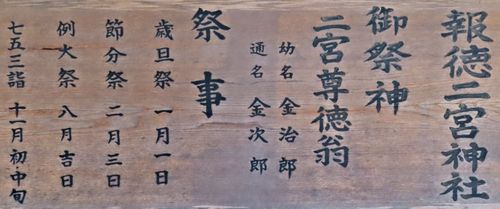 報徳二宮神社
御祭神
二宮尊徳翁
幼名 金治郎
通名 金次郎
祭事
歳旦祭 一月一日
節分祭 二月三日
例大祭 八月吉日
七五三詣 十一月初・中旬